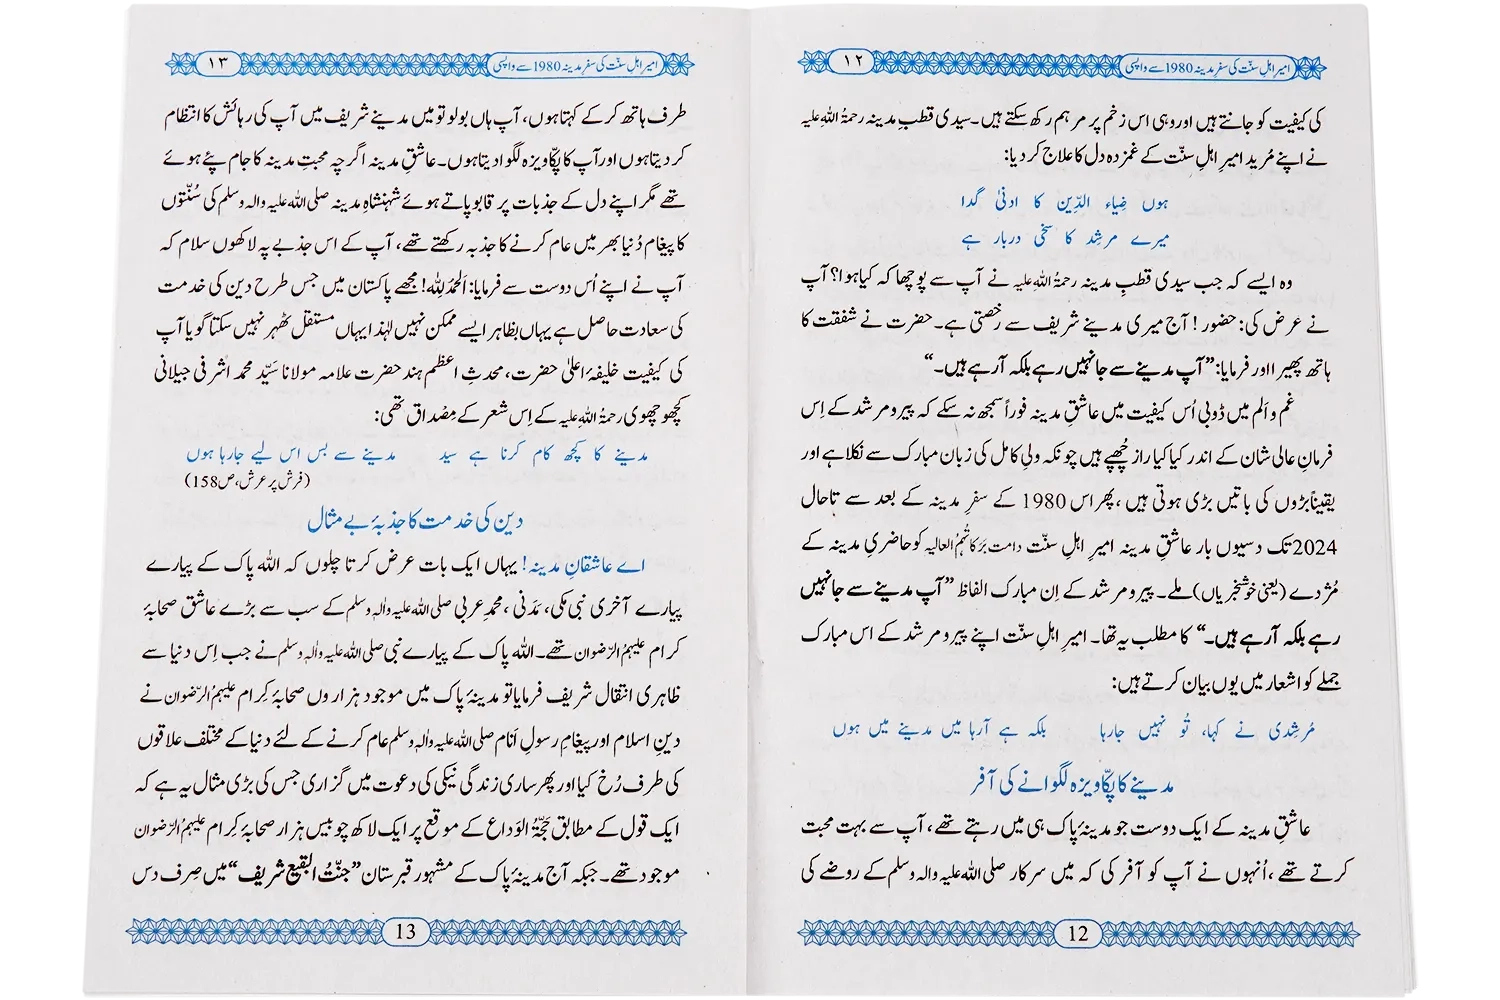 امیرِ اہلِ سنّت کی سفرِ مدینہ 1980 سے واپسی
۱۲
کی کیفیت کو جانتے ہیں اور وہی اس زخم پر مرہم رکھ سکتے ہیں۔ سیدی قطبِ مدینہ رحمۃُ اللہِ علیہ
نے اپنے مُرید امیرِ اہلِ سنّت کے غمزدہ دل کا علاج کر دیا:
ہوں ضِیاء الدِّین کا ادنیٰ گدا
میرے مرشِد کا سخی دربار ہے
وہ ایسے کہ جب سیدی قطبِ مدینہ رحمۃُ اللہِ علیہ نے آپ سے پوچھا کہ کیا ہوا؟ آپ
نے عرض کی: حضور! آج میری مدینے شریف سے رخصتی ہے۔ حضرت نے شفقت کا
ہاتھ پھیرا اور فرمایا: ”آپ مدینے سے جا نہیں رہے بلکہ آ رہے ہیں۔“
غم و اَلم میں ڈوبی اُس کیفیت میں عاشقِ مدینہ فوراً سمجھ نہ سکے کہ پیر و مرشد کے اِس
فرمانِ عالی شان کے اندر کیا کیا راز چُھپے ہیں چونکہ ولیِ کامل کی زبان مبارک سے نکلا ہے اور
یقیناً بڑوں کی باتیں بڑی ہوتی ہیں، پھر اس 1980 کے سفرِ مدینہ کے بعد سے تاحال
2024 تک دسیوں بار عاشقِ مدینہ امیرِ اہلِ سنّت دامت بَرَکاتُہُمُ العالیہ کو حاضریِ مدینہ کے
مُژدے (یعنی خوشخبریاں) ملے۔ پیر و مرشد کے اِن مبارک الفاظ ”آپ مدینے سے جا نہیں
رہے بلکہ آ رہے ہیں۔“ کا مطلب یہ تھا۔ امیرِ اہلِ سنّت اپنے پیر و مرشد کے اس مبارک
جملے کو اشعار میں یوں بیان کرتے ہیں:
مُرشِدی نے کہا، تُو نہیں جا رہا بلکہ ہے آ رہا میں مدینے میں ہوں
مدینے کا پکّا ویزہ لگوانے کی آفر
عاشقِ مدینہ کے ایک دوست جو مدینۂ پاک ہی میں رہتے تھے، آپ سے بہت محبت
کرتے تھے، اُنہوں نے آپ کو آفر کی کہ میں سرکار صلی اللہ علیہ والہ وسلم کے روضے کی
12
امیرِ اہلِ سنّت کی سفرِ مدینہ 1980 سے واپسی
۱۳
طرف ہاتھ کر کے کہتا ہوں، آپ ہاں بولو تو میں مدینے شریف میں آپ کی رہائش کا انتظام
کر دیتا ہوں اور آپ کا پکّا ویزہ لگوا دیتا ہوں۔ عاشقِ مدینہ اگرچہ محبتِ مدینہ کا جام پئے ہوئے
تھے مگر اپنے دل کے جذبات پر قابو پاتے ہوئے شہنشاہِ مدینہ صلی اللہ علیہ والہ وسلم کی سُنّتوں
کا پیغام دُنیا بھر میں عام کرنے کا جذبہ رکھتے تھے، آپ کے اس جذبے پہ لاکھوں سلام کہ
آپ نے اپنے اُس دوست سے فرمایا: اَلحمدُ لِلّٰہ! مجھے پاکستان میں جس طرح دین کی خدمت
کی سعادت حاصل ہے یہاں بظاہر ایسے ممکن نہیں لہٰذا یہاں مستقل ٹھہر نہیں سکتا گویا آپ
کی کیفیت خلیفۂ اعلیٰ حضرت، محدثِ اعظم ہند حضرت علامہ مولانا سَیّد محمد اشرفی جیلانی
کچھوچھوی رحمۃُ اللہِ علیہ کے اِس شعر کے مِصْداق تھی:
مدینے کا کچھ کام کرنا ہے سید مدینے سے بس اس لیے جا رہا ہوں
(فرش پر عرش، ص158)
دین کی خدمت کا جذبۂ بے مثال
اے عاشقانِ مدینہ! یہاں ایک بات عرض کرتا چلوں کہ اللہ پاک کے پیارے
پیارے آخری نبی مکی، مَدَنی، محمدِ عربی صلی اللہ علیہ واٰلہٖ وسلم کے سب سے بڑے عاشق صحابۂ
کرام علیہمُ الرّضوان تھے۔ اللہ پاک کے پیارے نبی صلی اللہ علیہ واٰلہٖ وسلم نے جب اِس دنیا سے
ظاہری انتقال شریف فرمایا تو مدینۂ پاک میں موجود ہزاروں صحابۂ کِرام علیہمُ الرّضوان نے
دینِ اسلام اور پیغامِ رسولِ اَنام صلی اللہ علیہ واٰلہٖ وسلم عام کرنے کے لئے دنیا کے مختلف علاقوں
کی طرف رُخ کیا اور پھر ساری زندگی نیکی کی دعوت میں گزاری جس کی بڑی مثال یہ ہے کہ
ایک قول کے مطابق حَجّۃُ الوَداع کے موقع پر ایک لاکھ چوبیس ہزار صحابۂ کِرام علیہمُ الرّضوان
موجود تھے۔ جبکہ آج مدینۂ پاک کے مشہور قبرستان ”جنّتُ البقیع شریف“ میں صِرف دس
13